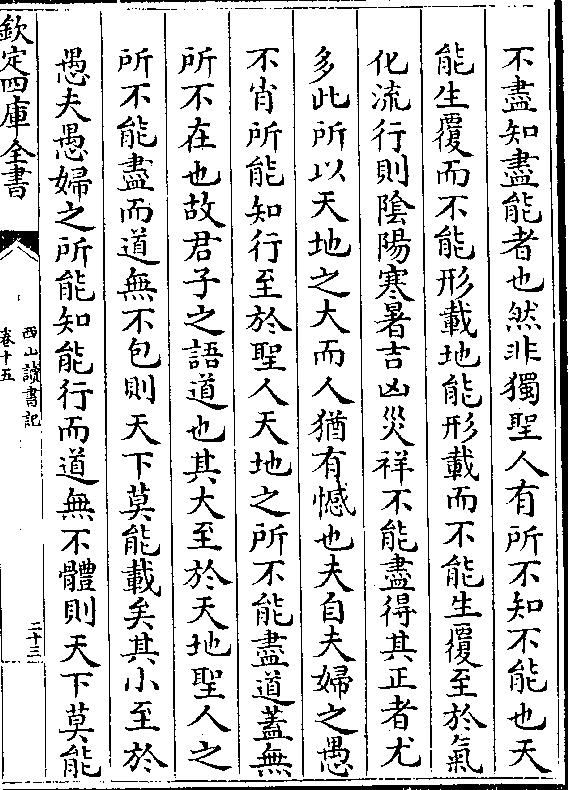 不盡知盡能者也然非獨聖人有所不知不能也天
能生覆而不能形載地能形載而不能生覆至於氣
化流行則陰陽寒暑吉凶災祥不能盡得其正者尤
多此所以天地之大而人猶有憾也夫自夫婦之愚
不肖所能知行至於聖人天地之所不能盡道蓋無
所不在也故君子之語道也其大至於天地聖人之
所不能盡而道無不包則天下莫能載矣其小至於
愚夫愚婦之所能知能行而道無不體則天下莫能
欽定四庫全書
西山讀書記
卷十五
二十三